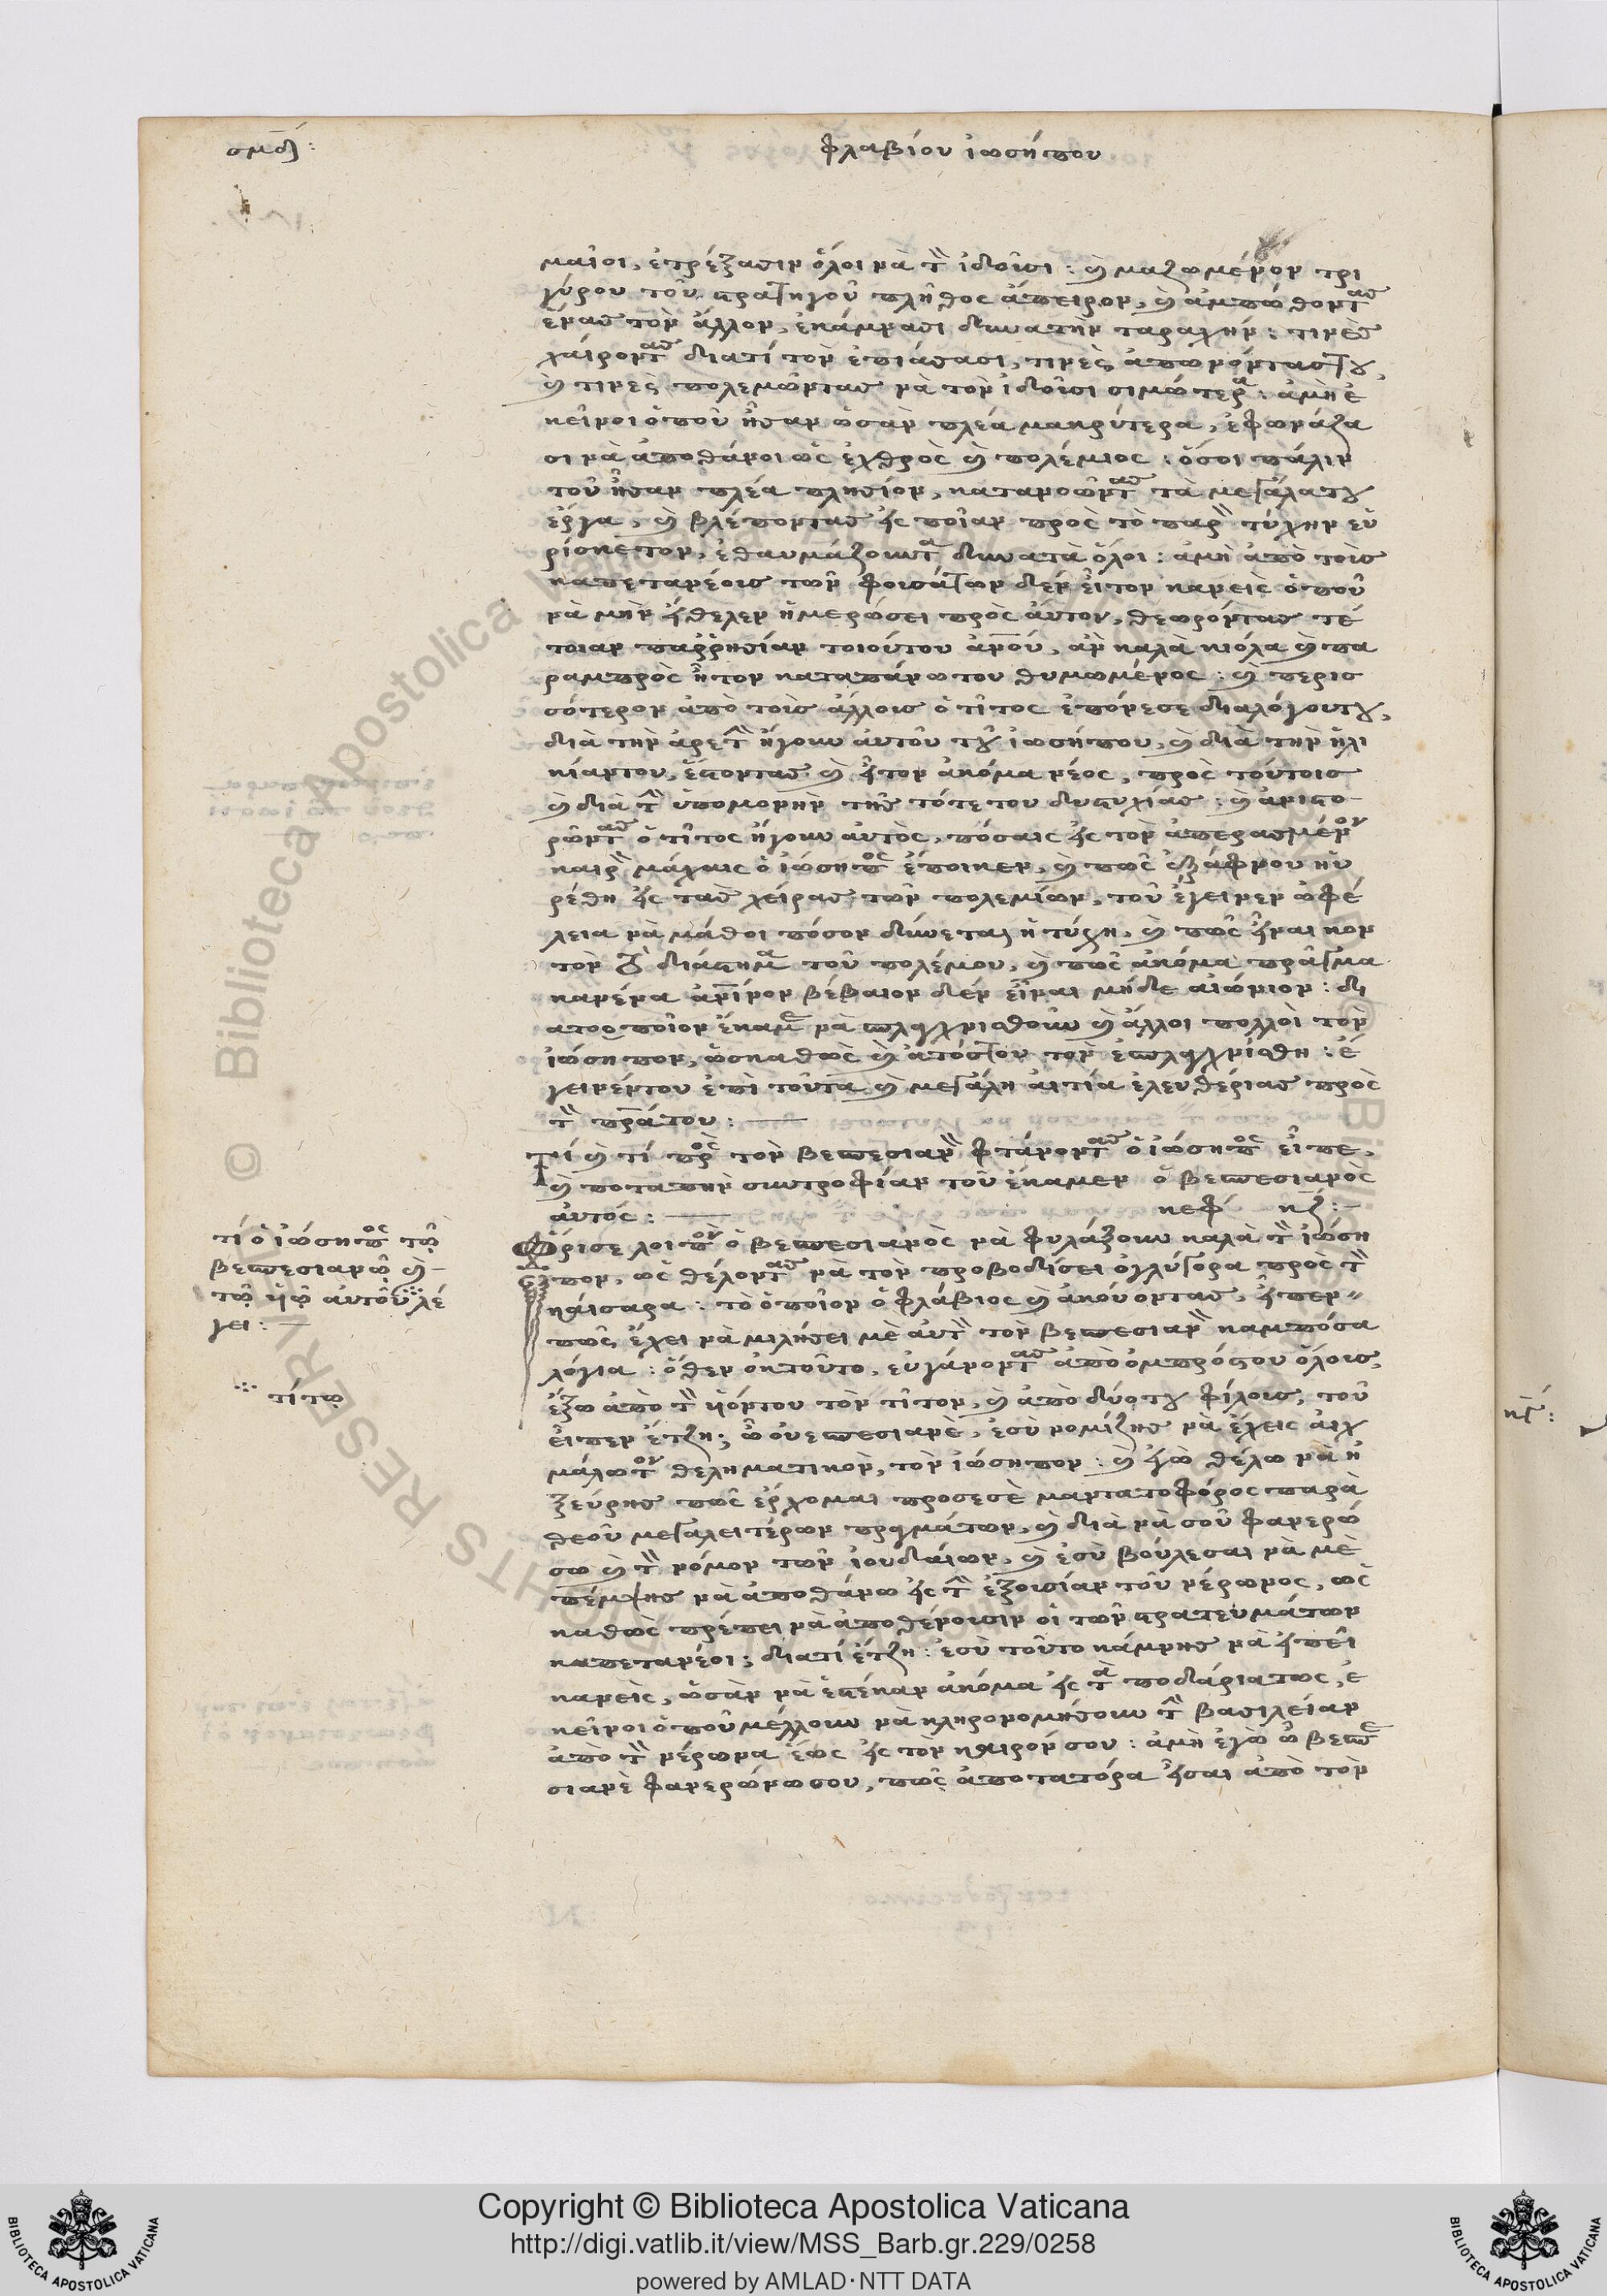 φλαβίου ἰωσήπου
μαῖοι, ἐτρέξασιν ὅλοι νὰ τὸν ἰδοῦσι: καὶ μαζωμένον τρι
γύρου τοῦ στρατηγοῦ πλῆθος ἄπειρον, καὶ ἀμπώθοντας
ἕνας τὸν ἄλλον, ἐκάμνασι δυνατὴν ταραχήν: τινὲς
χαίροντας διατί τὸν ἐπιάσασι, τινὲς
καὶ τινὲς πολεμῶντας νὰ τὸν ἰδοῦσι σιμώτερα: ἀμὴ ἐ
κεῖνοι ὁποῦ ἦσαν ὡσὰν πλέα μακρύτερα, ἐφωνάζα
σι νὰ ἀποθάνοι ὡς ἐχθρὸς καὶ πολέμιος: ὅσοι πάλιν
τοῦ ἦσαν πλέα πλησίον, κατανοῶντας τὰ μεγάλα του
ἔργα, καὶ βλέποντας εἰς ποῖαν πρὸς τὸ παρὸν τύχην εὑ
ρίσκετον, ἐθαυμάζουντα δυνατὰ ὅλοι: ἀμὴ ἀπὸ τοὶς
καπετανέοις τῶν φουσάτων δὲν εἶτον κανεὶς ὁποῦ
νὰ μὴν ἤθελεν ἡμερώσει πρὸς αὐτον, θεωρόντας τέ
τοιαν παῤῥησίαν τοιούτου ἀνου, ἂν καλὰ κιόλα καὶ πα
ραμπρὸς ἦτον καταπάνωτου θυμωμένος: καὶ περισ
σότερον ἀπὸ τοὶς ἄλλοις ὁ τίτος ἐπόνεσε διαλόγουτου,
διὰ τὴν ἀρετὴν ἤγουν αὐτοῦ τοῦ ἰωσήπου, καὶ διὰ τὴν ἡλι
κίαντου, ἔστοντας καὶ ἦτον ἀκόμα νέος, πρὸς τούτοις
καὶ διὰ τὴν ὑπομονὴν τῆς τότε του δυστυχίας: καὶ ἀνιστο-
ρῶντας ὁ τίτος ἤγουν αὐτὸς, πόσαις εἰς τὸν ἀπερασμένον
καιρὸν μάχαις ὁ ἰώσηπος ἐποίκεν, καὶ πῶς ἐξάφνου ηὑ
ρέθη εἰς τας χεῖρας τῶν πολεμίων, τοῦ ἐγείνεν ὠφέ
λεια νὰ μάθοι πόσον δύνεται ἡ τύχη, καὶ πῶς εἶναι κον
τὸν τὸ διάστημα τοῦ πολέμου, καὶ πῶς ἀκόμα πρᾶγμα
κανένα ἀνινον βέβαιον δὲν εἶναι μήδε αἰώνιον: δι
ατοοποῖον ἔκαμε νὰ σπλαχνισθοῦν καὶ ἄλλοι πολλοὶ τὸν
ἰώσηπον, ὥσκαθὼς καὶ ἀτόςτου τὸν ἐσπλαχνίσθη: ἐ
γεινέντου ἐπὶ τοῦτα καὶ μεγάλη αἰτία ἐλευθερίας πρὸς
τὸν πρατου:
Τί καὶ τί πρὸς τὸν βεσπεσιανὸν φτάνοντας ὁ ἰώσηπος εἶπε,
καὶ ποταπὴν συντροφίαν τοῦ ἔκαμεν ὁ βεσπεσιανὸς
αὐτός: κεφ κζ:
Ὅρισε λοιπὸν ὁ βεσπεσιανὸς νὰ φυλάξουν καλὰ τὸν ἰώση
πον, ὡς θέλοντας νὰ τὸν προβοδίσει ὀγλύγορα πρὸς τὸν
καίσαρα: τὸ ὁποῖον ὁ φλάβιος καὶ ἀκούοντας, εἶπεν
πῶς ἔχει νὰ μιλήσει μὲ αὐτὸν τὸν βεσπεσιανὸν καμπόσα
λόγια: ὅθεν διὰτοῦτο, εὐγάνοντας ἀπὸ ὀμπρόςτου ὅλοις,
ἔξω ἀπὸ τὸν υἱόντου τὸν τίτον, καὶ ἀπὸ δύοτου φίλοις, τοῦ
εἶπεν ἔτζη; ὦ οὐεσπεσιανὲ, ἐσὺ νομίζης νὰ ἔχεις αἰχ
μάλωτον θεληματικὸν, τὸν ἰώσηπον: καὶ ἐγὼ θέλω νὰ ἠ
ξεύρης πῶς ἔρχομαι προσεσὲ μαντατοφόρος παρὰ
θεοῦ μεγαλειτέρων πραγμάτων, καὶ διὰ νὰ σοῦ φανερώ
σω καὶ τὸν νόμον τῶν ἰουδαίων, καὶ ἐσὺ βούλεσαι νὰ μὲ
πέμψης νὰ ἀποθάνω εἰς τὴν ἐξουσίαν τοῦ νέρωνος, ὡς
καθὼς πρέπει νὰ ἀποθένουσιν οἱ τῶν στρατευμάτων
καπετανέοι; διατί ἔτζη: ἐσὺ τοῦτο κάμνης νὰ εἰπεῖ
κανεὶς, ὡσὰν νὰ ἐστέκαν ἀκόμα εἰς τὰ ποδάριατως, ἐ
κεῖνοι ὁποῦ μέλλουν νὰ κληρονομήσουν τὴν βασιλείαν
ἀπὸ τὸν νέρωνα ἕως εἰς τὸν καιρόν σου: ἀμὴ ἐγὼ ὦ βεσπε
σιανὲ φανερώνωσου, πῶς ἀποτατόρα εἶσαι ἀπὸ τὸν
τί ὁ ἰώσηπος τῷ
βεσπεσιανῷ καὶ
τῷ υἱῷ αὐτοῦ λέ
γει:
τίτω
Copyright © Biblioteca Apostolica Vaticana
http://digi.vatlib.it/view/MSS_Barb.gr.229/0258
powered by AMLAD·NTT DATA